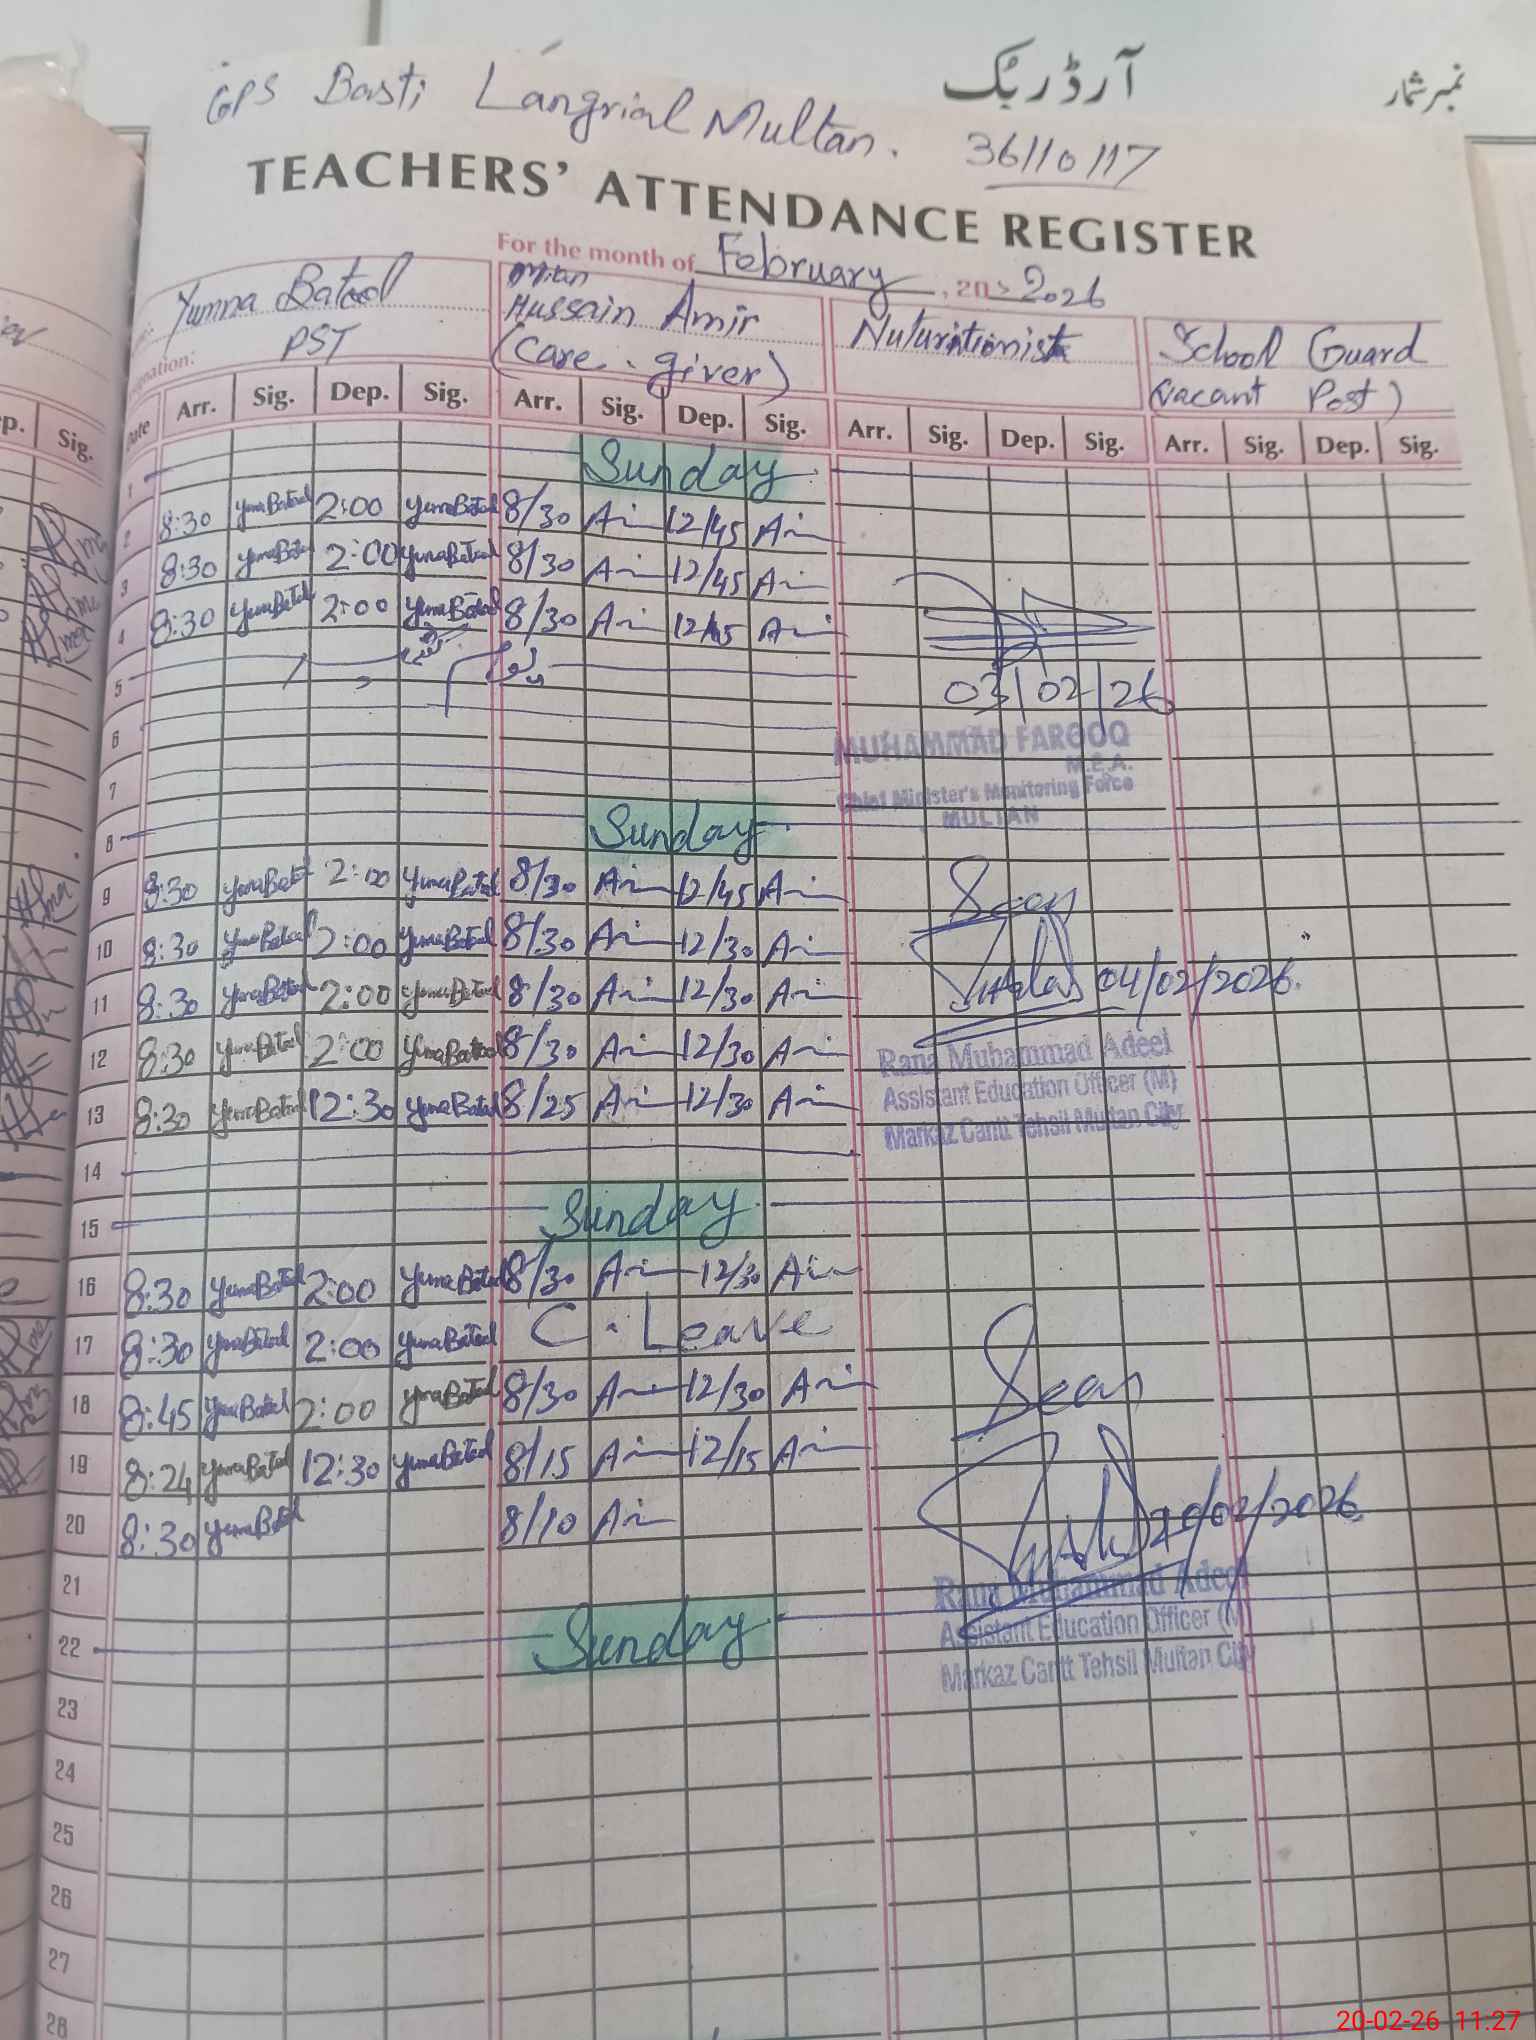 آرڈر بک
نمبر شمار
GPS Basti Langrial Multan. 36110117
TEACHERS' ATTENDANCE REGISTER
For the month of February, 20 2026
Yumna Batool
PST
Hussain Amir
(Care giver)
Nuturitionist
School Guard
(Vacant Post)
Date Arr. Sig. Dep. Sig. Arr. Sig. Dep. Sig. Arr. Sig. Dep. Sig. Arr. Sig. Dep. Sig.
1 Sunday
2 8:30 Yumna Batool 2:00 Yumna Batool 8/30 12/45
3 8:30 Yumna Batool 2:00 Yumna Batool 8/30 12/45
4 8:30 Yumna Batool 2:00 Yumna Batool 8/30 12/45
5
03/02/26
6
MUHAMMAD FAROOQ
M.E.A.
7
Chief Minister's Monitoring Force
MULTAN
8 Sunday
9 8:30 Yumna Batool 2:00 Yumna Batool 8/30 12/45 Seen
10 8:30 Yumna Batool 2:00 Yumna Batool 8/30 12/30
11 8:30 Yumna Batool 2:00 Yumna Batool 8/30 12/30 04/02/2026.
12 8:30 Yumna Batool 2:00 Yumna Batool 8/30 12/30 Rana Muhammad Adeel
Assistant Education Officer (M)
13 8:30 Yumna Batool 12:30 Yumna Batool 8/25 12/30 Markaz Cantt Tehsil Multan City
14
15 Sunday
16 8:30 Yumna Batool 2:00 Yumna Batool 8/30 12/30
17 8:30 Yumna Batool 2:00 Yumna Batool C. Leave
18 8:45 Yumna Batool 2:00 Yumna Batool 8/30 12/30 Seen
19 8:24 Yumna Batool 12:30 Yumna Batool 8/15 12/15
20 8:30 Yumna Batool 8/10 20/02/2026
21 Rana Muhammad Adeel
Assistant Education Officer (M)
22 Sunday Markaz Cantt Tehsil Multan City
23
24
25
26
27
28
20-02-26 11:27